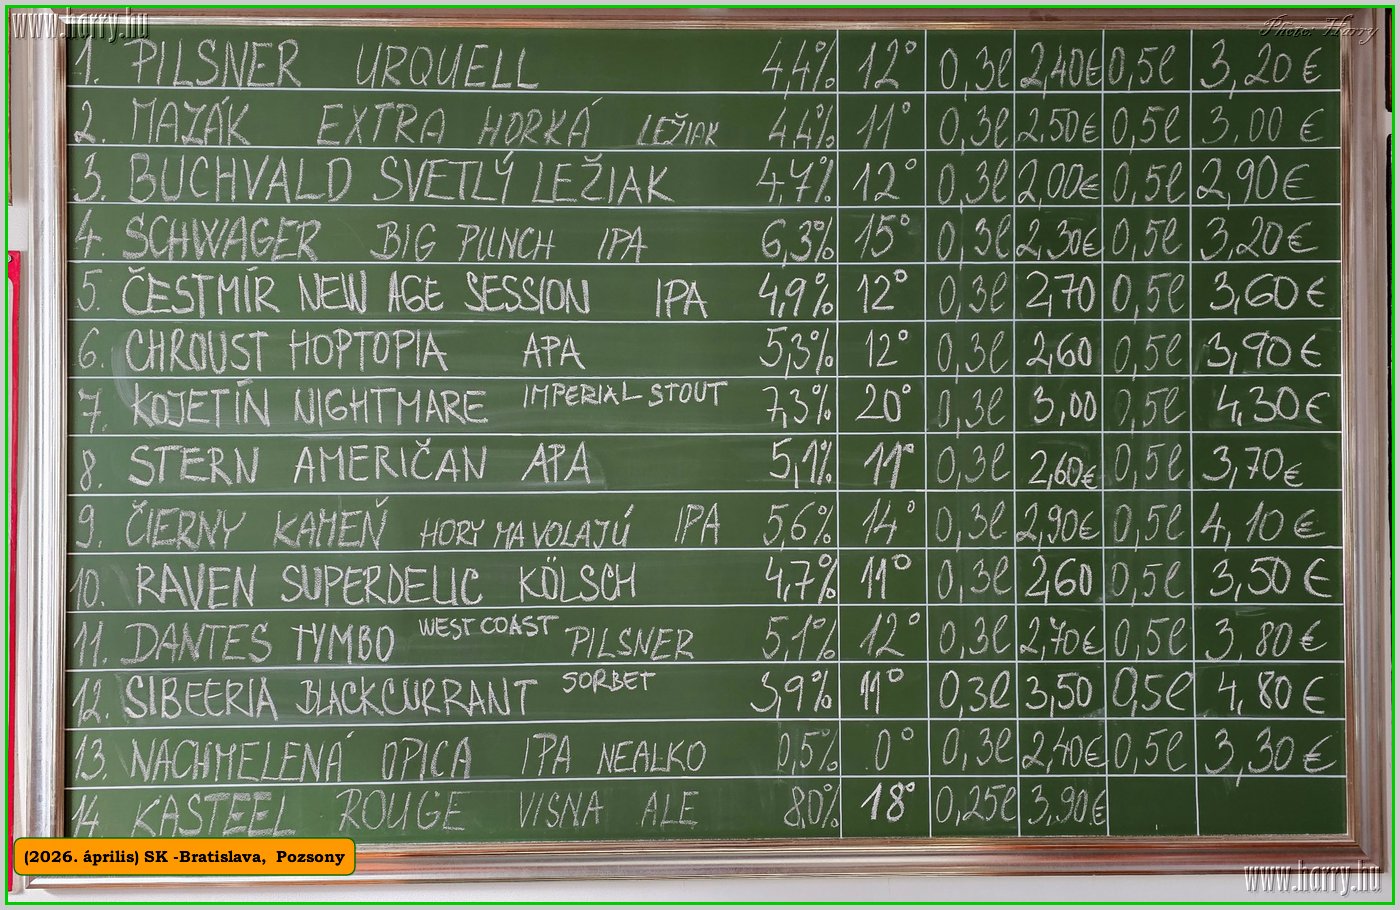 www.harry.hu
Photo: Harry
1. PILSNER URQUELL 4,4% 12° 0,3l 2,40€ 0,5l 3,20€
2. MAZÁK EXTRA HORKÁ LEŽIAK 4,4% 11° 0,3l 2,50€ 0,5l 3,00€
3. BUCHVALD SVETLÝ LEŽIAK 4,7% 12° 0,3l 2,00€ 0,5l 2,90€
4. SCHWAGER BIG PUNCH IPA 6,3% 15° 0,3l 2,30€ 0,5l 3,20€
5. ČESTMÍR NEW AGE SESSION IPA 4,9% 12° 0,3l 2,70 0,5l 3,60€
6. CHROUST HOPTOPIA APA 5,3% 12° 0,3l 2,60 0,5l 3,90€
7. KOJETÍN NIGHTMARE IMPERIAL STOUT 7,3% 20° 0,3l 3,00 0,5l 4,30€
8. STERN AMERIČAN APA 5,1% 11° 0,3l 2,60€ 0,5l 3,70€
9. ČIERNY KAMEŇ HORY MA VOLAJÚ IPA 5,6% 14° 0,3l 2,90€ 0,5l 4,10€
10. RAVEN SUPERDELIC KÖLSCH 4,7% 11° 0,3l 2,60 0,5l 3,50€
11. DANTES TYMBO WEST COAST PILSNER 5,1% 12° 0,3l 2,70€ 0,5l 3,80€
12. SIBEERIA BLACKCURRANT SORBET 3,9% 11° 0,3l 3,50 0,5l 4,80€
13. NACHMELENÁ OPICA IPA NEALKO 0,5% 0° 0,3l 2,40€ 0,5l 3,30€
14 KASTEEL ROUGE VISNA ALE 8,0% 18° 0,25l 3,90€
(2026. április) SK -Bratislava, Pozsony
www.harry.hu